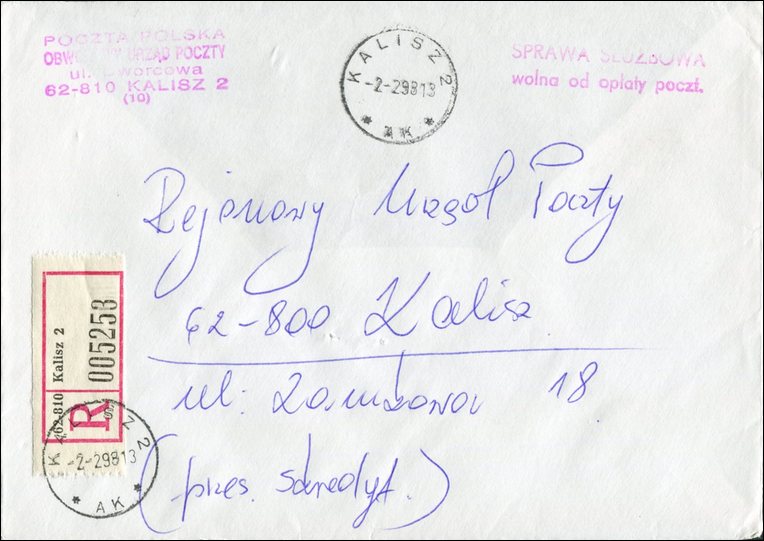 POCZTA POLSKA
OBWODOWY URZĄD POCZTY
ul. Dworcowa
62-810 KALISZ 2
(10)
KALISZ 2
-2-2.98 13
* AK *
SPRAWA SŁUŻBOWA
wolna od opłaty poczt.
Rejonowy Urząd Poczty
62-800 Kalisz
ul: Zamkowa 18
(przes.
62-810 Kalisz 2
R
005253
KALISZ 2
-2-2.98 13
* AK *